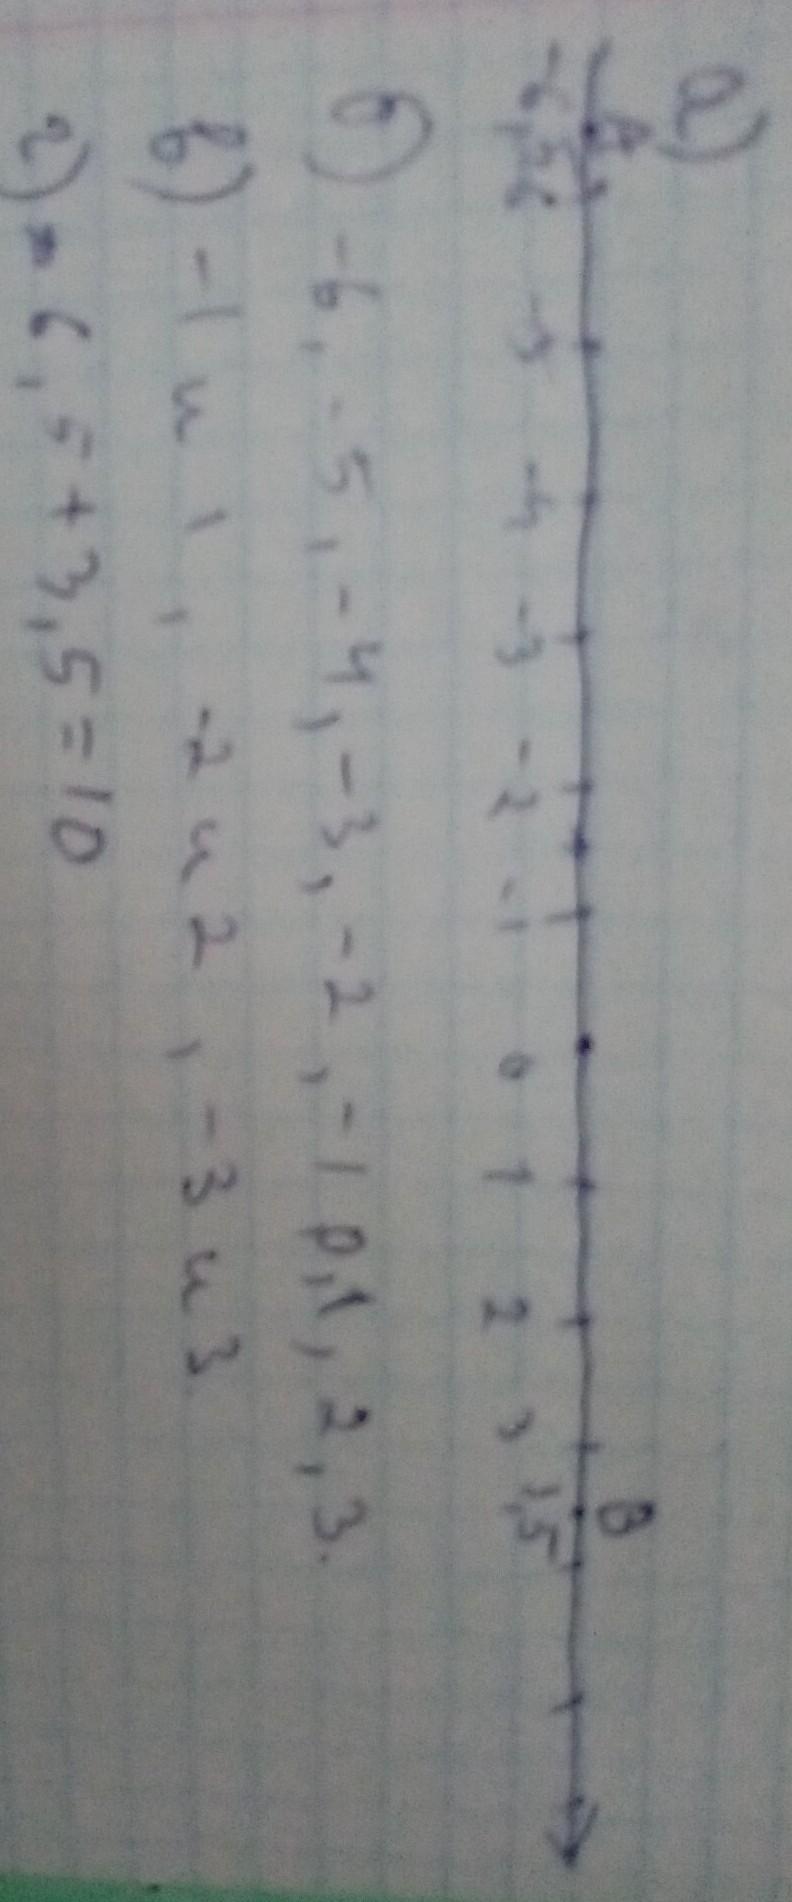 а)
А В
-6,5 -6 -5 -4 -3 -2 -1 0 1 2 3 3,5
б) -6, -5, -4, -3, -2, -1 0, 1, 2, 3.
в) -1 и 1, -2 и 2, -3 и 3
г) 6,5 + 3,5 = 10